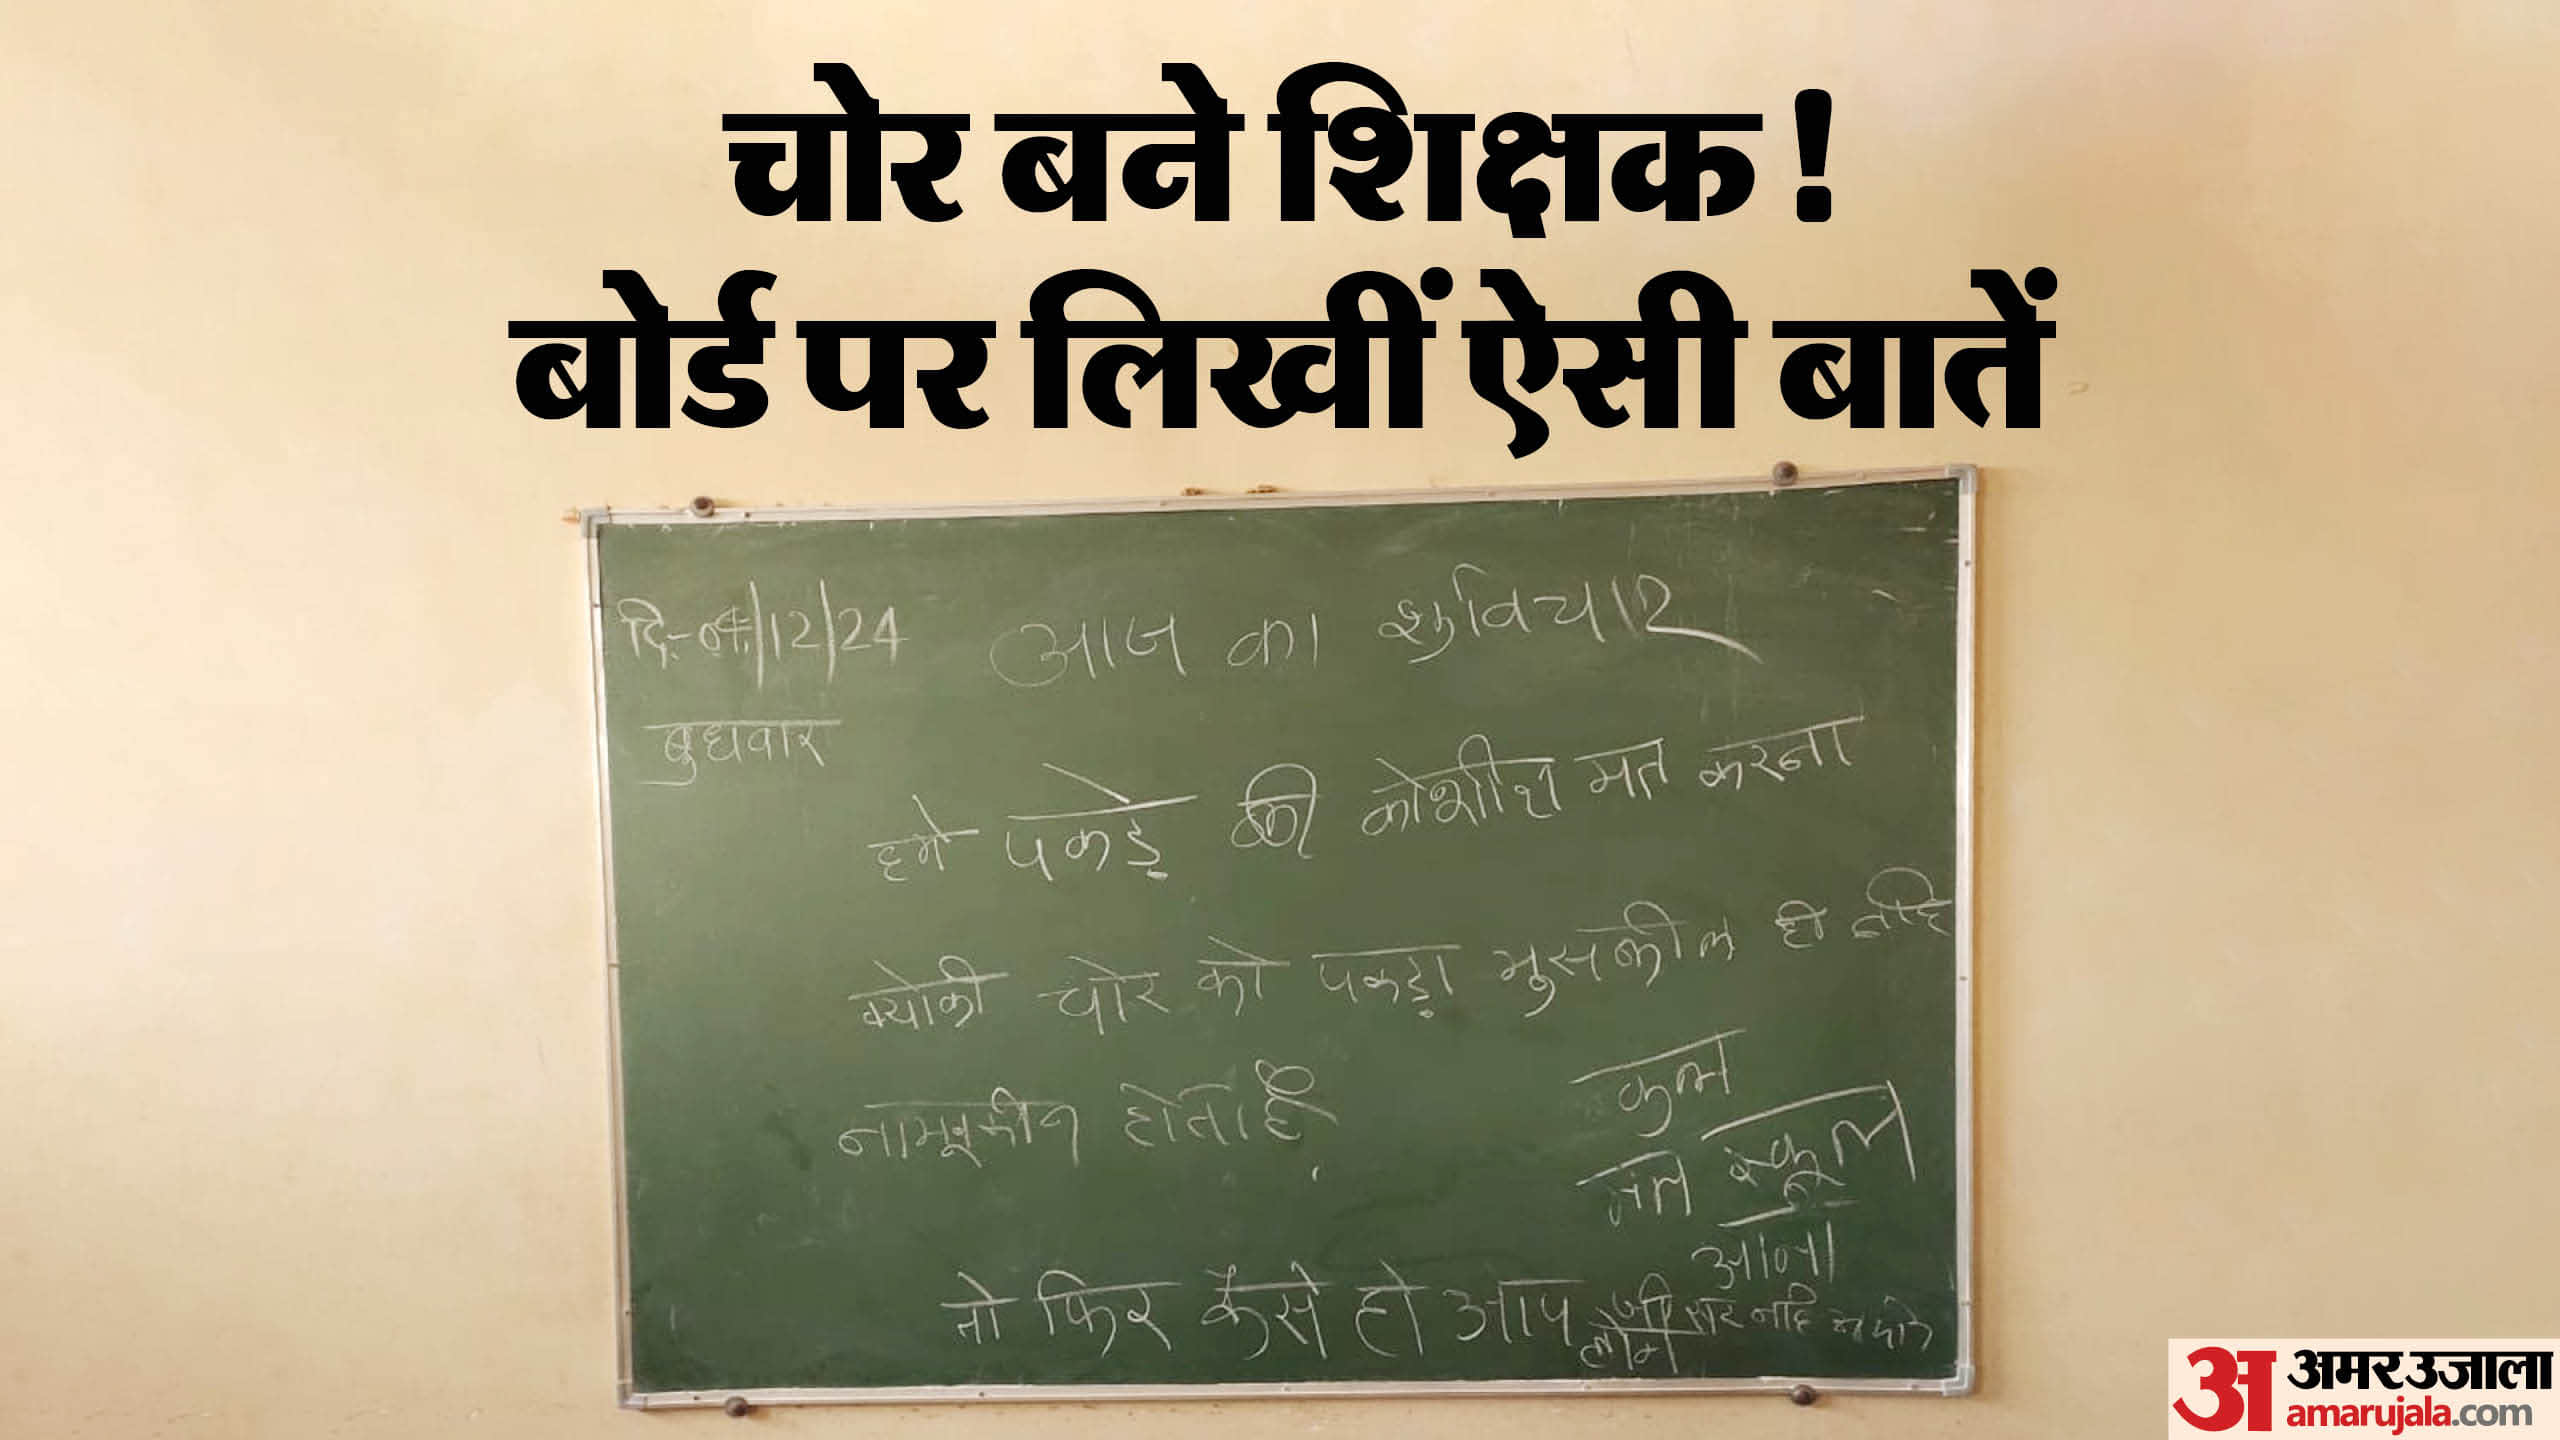 चोर बने शिक्षक!
बोर्ड पर लिखीं ऐसी बातें
दि:- 04/12/24 आज का शुविचार
बुधवार
हमे पकड़े की कोशीश मत करना
क्योकी चोर को पकड़ा मुसकील ही नहि
नामूमकीन होता है
कुल
मत स्कूल
आना
तो फिर कैसे हो आप लोग
अमर उजाला
amarujala.com